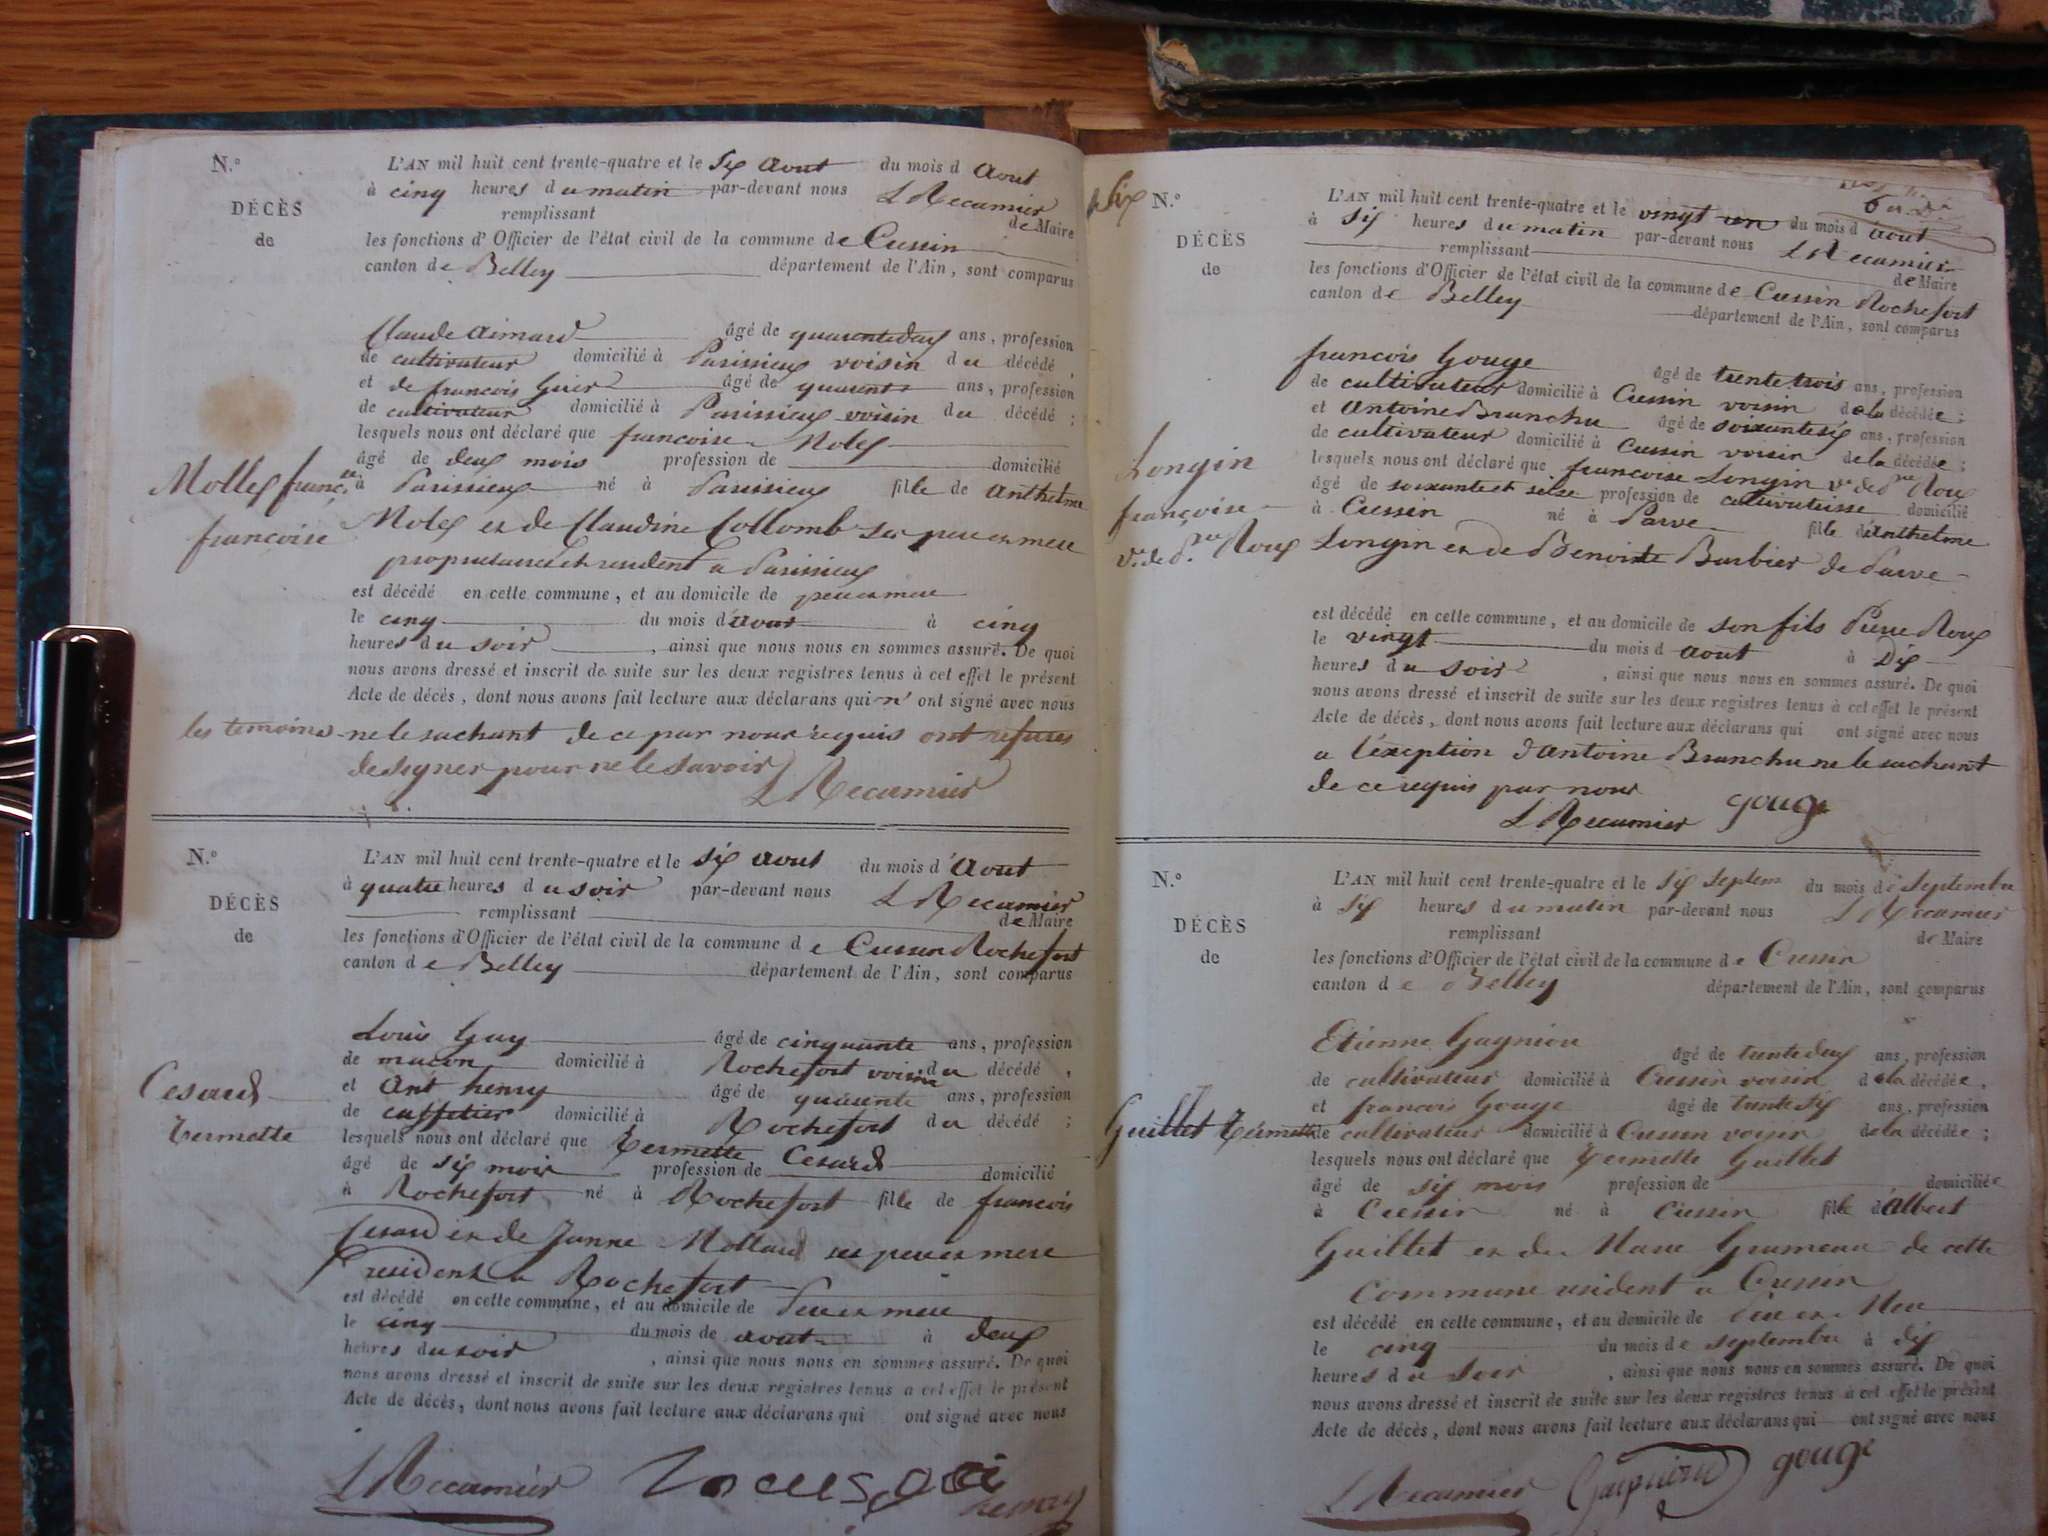 N.o
L'AN mil huit cent trente-quatre et le Six aout du mois d aout
à cinq heures du matin par-devant nous L Recamier
DÉCÈS
remplissant de Maire
de
les fonctions d'Officier de l'état civil de la commune de Cressin
canton de Belley département de l'Ain, sont comparus
Claude aimard âgé de quarente deux ans, profession
de cultivateur domicilié à Parissieux voisin du décédé,
et de francois Guer âgé de quarente ans, profession
de cultivateur domicilié à Parissieux voisin du décédé;
lesquels nous ont déclaré que francoise Molex
âgé de deux mois profession de domicilié
Mollex franc.se à Parissieux né à Parissieux fille de anthelme
francoise Molex et de Claudine Collomb ses pere et mere
proprietaires et resident a Parissieux
est décédé en cette commune, et au domicile de pere et mere
le cinq du mois d'aout à cinq
heures du soir, ainsi que nous nous en sommes assuré. De quoi
nous avons dressé et inscrit de suite sur les deux registres tenus à cet effet le présent
Acte de décès, dont nous avons fait lecture aux déclarans qui n' ont signé avec nous
les temoins ne le sachant de ce par nous requis ont refuses
de signer pour ne le savoir L Recamier
N.o
L'AN mil huit cent trente-quatre et le six aout du mois d'Aout
à quatre heures du soir par-devant nous L Recamier
DÉCÈS
remplissant de Maire
de
les fonctions d'Officier de l'état civil de la commune de Cressin Rochefort
canton de Belley département de l'Ain, sont comparus
Louis Guy âgé de cinquante ans, profession
de macon domicilié à Rochefort voisin du décédé,
Cesard et Ant henry âgé de quarente ans, profession
de caffetier domicilié à Rochefort du décédé;
Termette lesquels nous ont déclaré que Termette Cesard
âgé de six mois profession de domicilié
à Rochefort né à Rochefort fille de francois
Cesard et de Janne Mollard ses pere et mere
resident a Rochefort
est décédé en cette commune, et au domicile de Pere et mere
le cinq du mois de aout à deux
heures du soir, ainsi que nous nous en sommes assuré. De quoi
nous avons dressé et inscrit de suite sur les deux registres tenus à cet effet le présent
Acte de décès, dont nous avons fait lecture aux déclarans qui ont signé avec nous
L Recamier henry
Six
N.o
L'AN mil huit cent trente-quatre et le vingt un du mois d aout
à six heures du matin par-devant nous L Recamier
DÉCÈS
remplissant de Maire
de
les fonctions d'Officier de l'état civil de la commune de Cressin Rochefort
canton de Belley département de l'Ain, sont comparus
francois Gouge âgé de trente trois ans, profession
de cultivateur domicilié à Cressin voisin de la décédée;
et antoine Branchu âgé de soixante six ans, profession
de cultivateur domicilié à Cressin voisin de la décédée;
Longin lesquels nous ont déclaré que francoise Longin v.e de p.rre Roux
âgé de soixante et seise profession de cultivatrisse domicilié
françoise à Cressin né à Parve fille d'anthelme
v.e de p.rre Roux Longin et de Benoite Barbier de Parve
est décédé en cette commune, et au domicile de son fils Pierre Roux
le vingt du mois d aout à Dix
heures du soir, ainsi que nous nous en sommes assuré. De quoi
nous avons dressé et inscrit de suite sur les deux registres tenus à cet effet le présent
Acte de décès, dont nous avons fait lecture aux déclarans qui ont signé avec nous
a l'éxeption d'antoine Branchu ne le sachant
de ce requis par nous
L Recamier gouge
N.o
L'AN mil huit cent trente-quatre et le six septem du mois de septembre
à six heures du matin par-devant nous L Recamier
DÉCÈS
remplissant de Maire
de
les fonctions d'Officier de l'état civil de la commune de Cressin
canton de Belley département de l'Ain, sont comparus
Etienne Gagnieu âgé de trente deux ans, profession
de cultivateur domicilié à Cressin voisin de la décédée,
et francois Gouge âgé de trente six ans, profession
Guillet Termette de cultivateur domicilié à Cressin voisin de la décédée;
lesquels nous ont déclaré que Termette Guillet
âgé de six mois profession de domiciliée
à Cressin né à Cressin fille d'albert
Guillet et de Marie Grumeau de cette
Commune resident a Cressin
est décédé en cette commune, et au domicile de Pere et Mere
le cinq du mois de septembre à dix
heures du soir, ainsi que nous nous en sommes assuré. De quoi
nous avons dressé et inscrit de suite sur les deux registres tenus à cet effet le présent
Acte de décès, dont nous avons fait lecture aux déclarans qui ont signé avec nous
L Recamier gouge